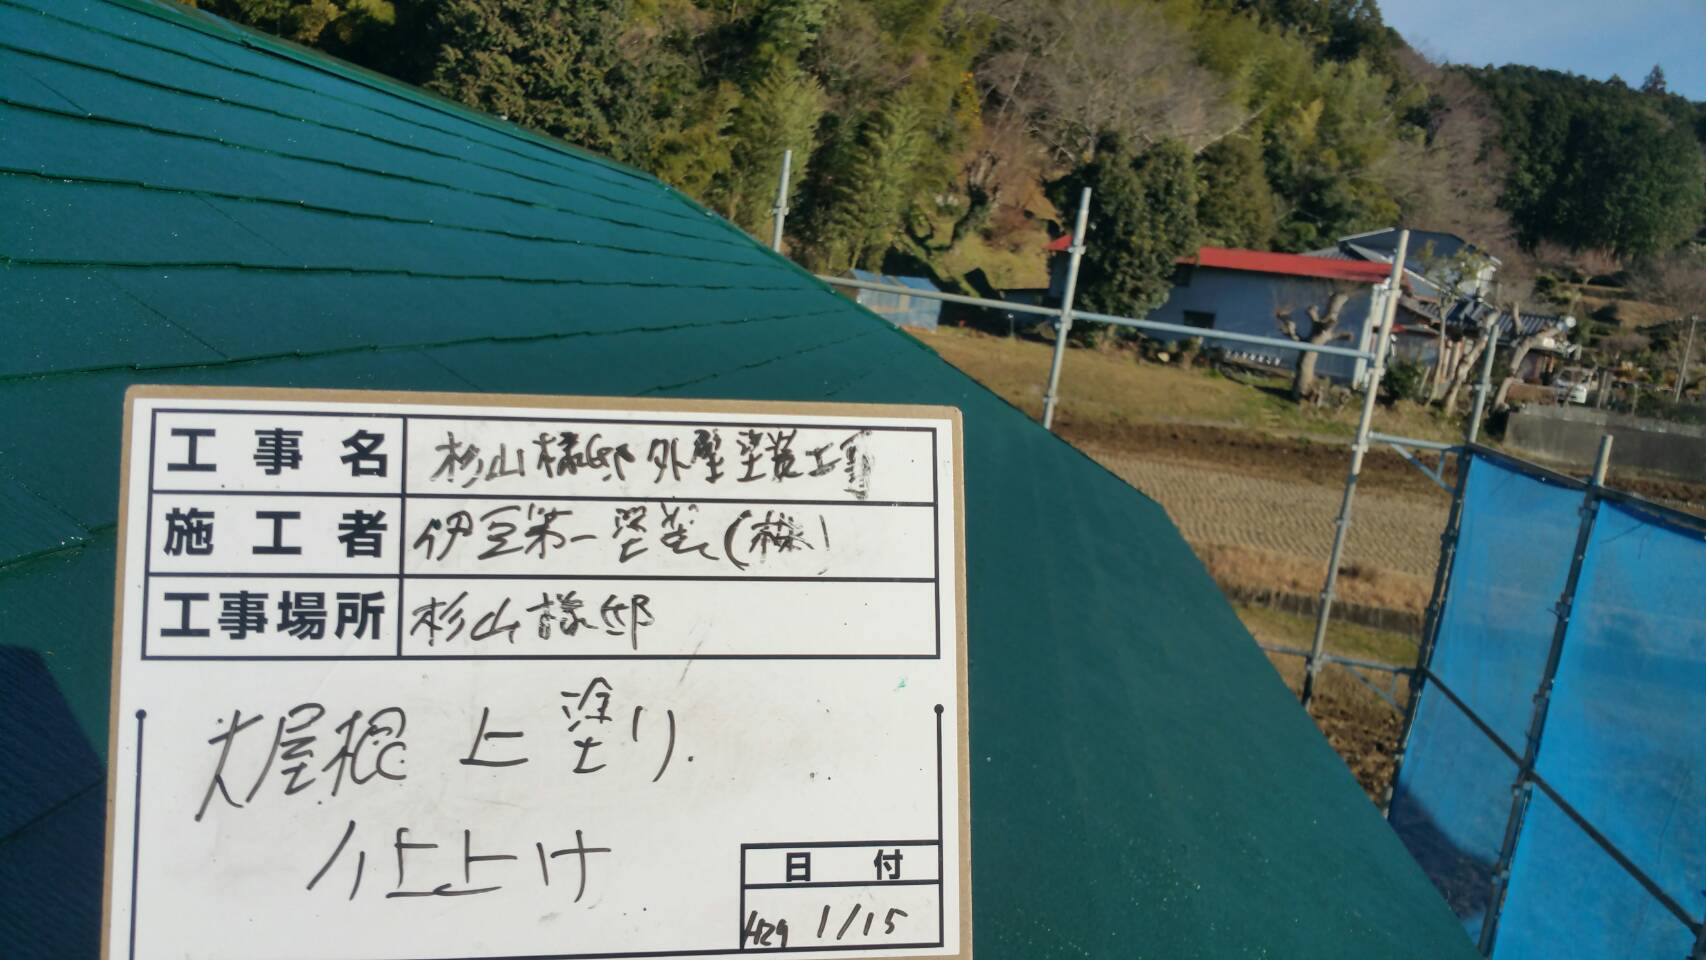 工事名 杉山様邸外壁塗装工事
施工者 伊豆第一塗装(株)
工事場所 杉山様邸
大屋根 上塗り
仕上げ
日付
H29 1/15